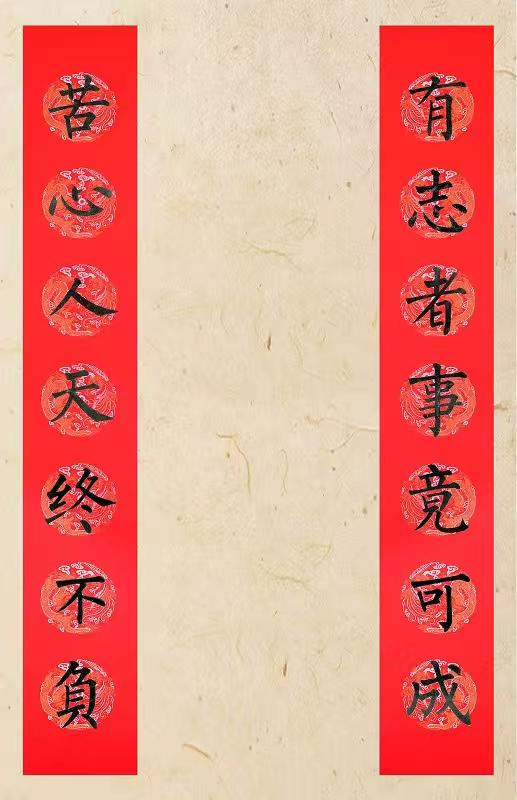 有志者事竟可成
苦心人天终不負